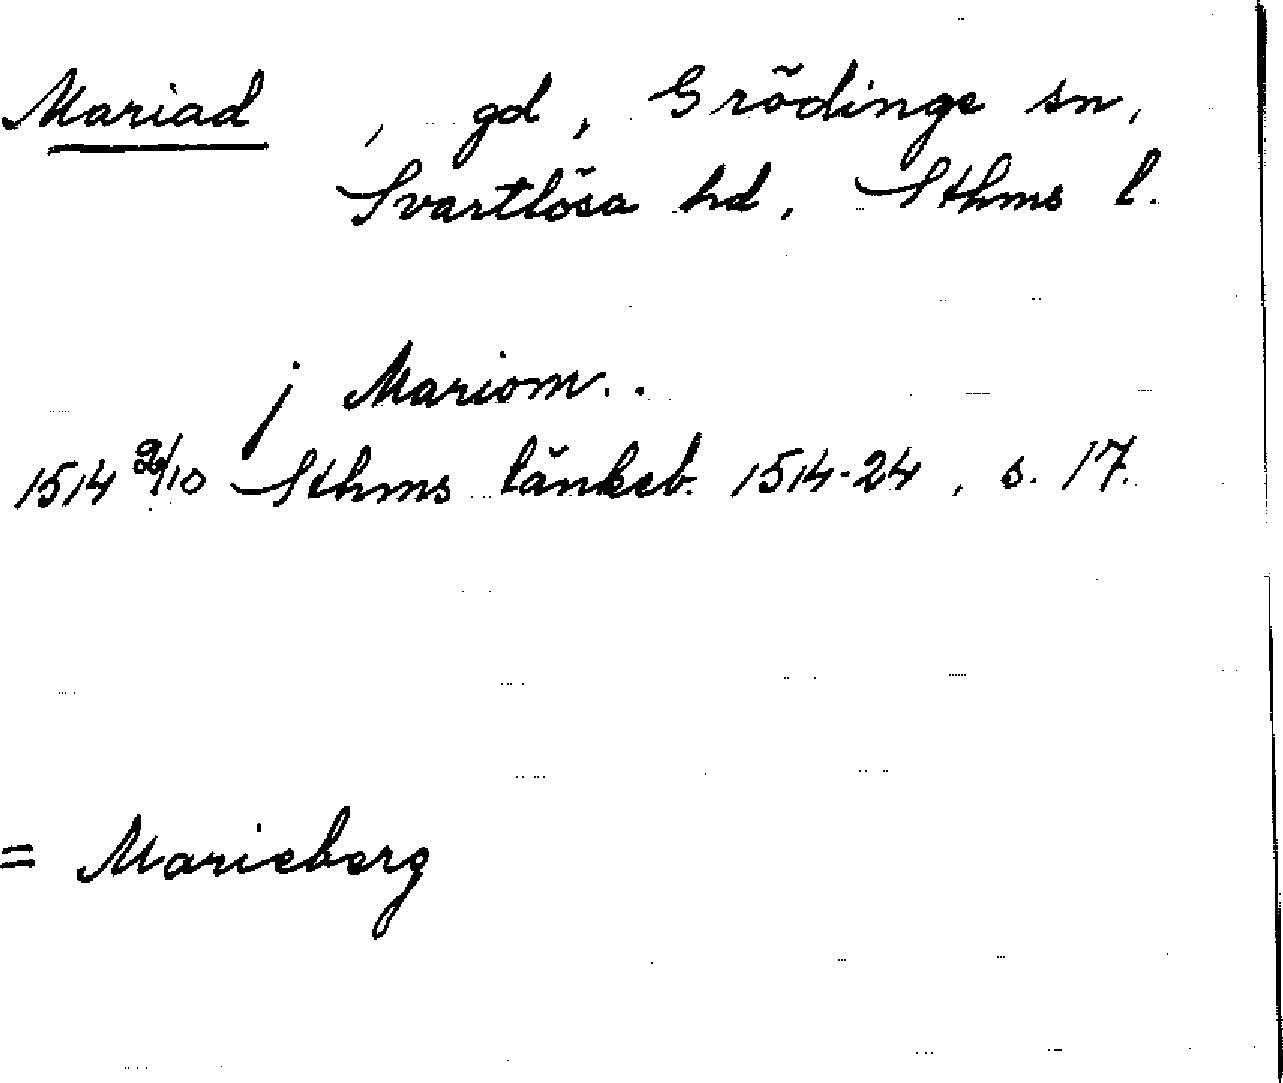 Mariad , gd , Grödinge sn,
Svartlösa hd, Sthms l.
j Mariom..
1514 2/10 Sthms tänkeb. 1514-24 , s. 17.
= Marieberg